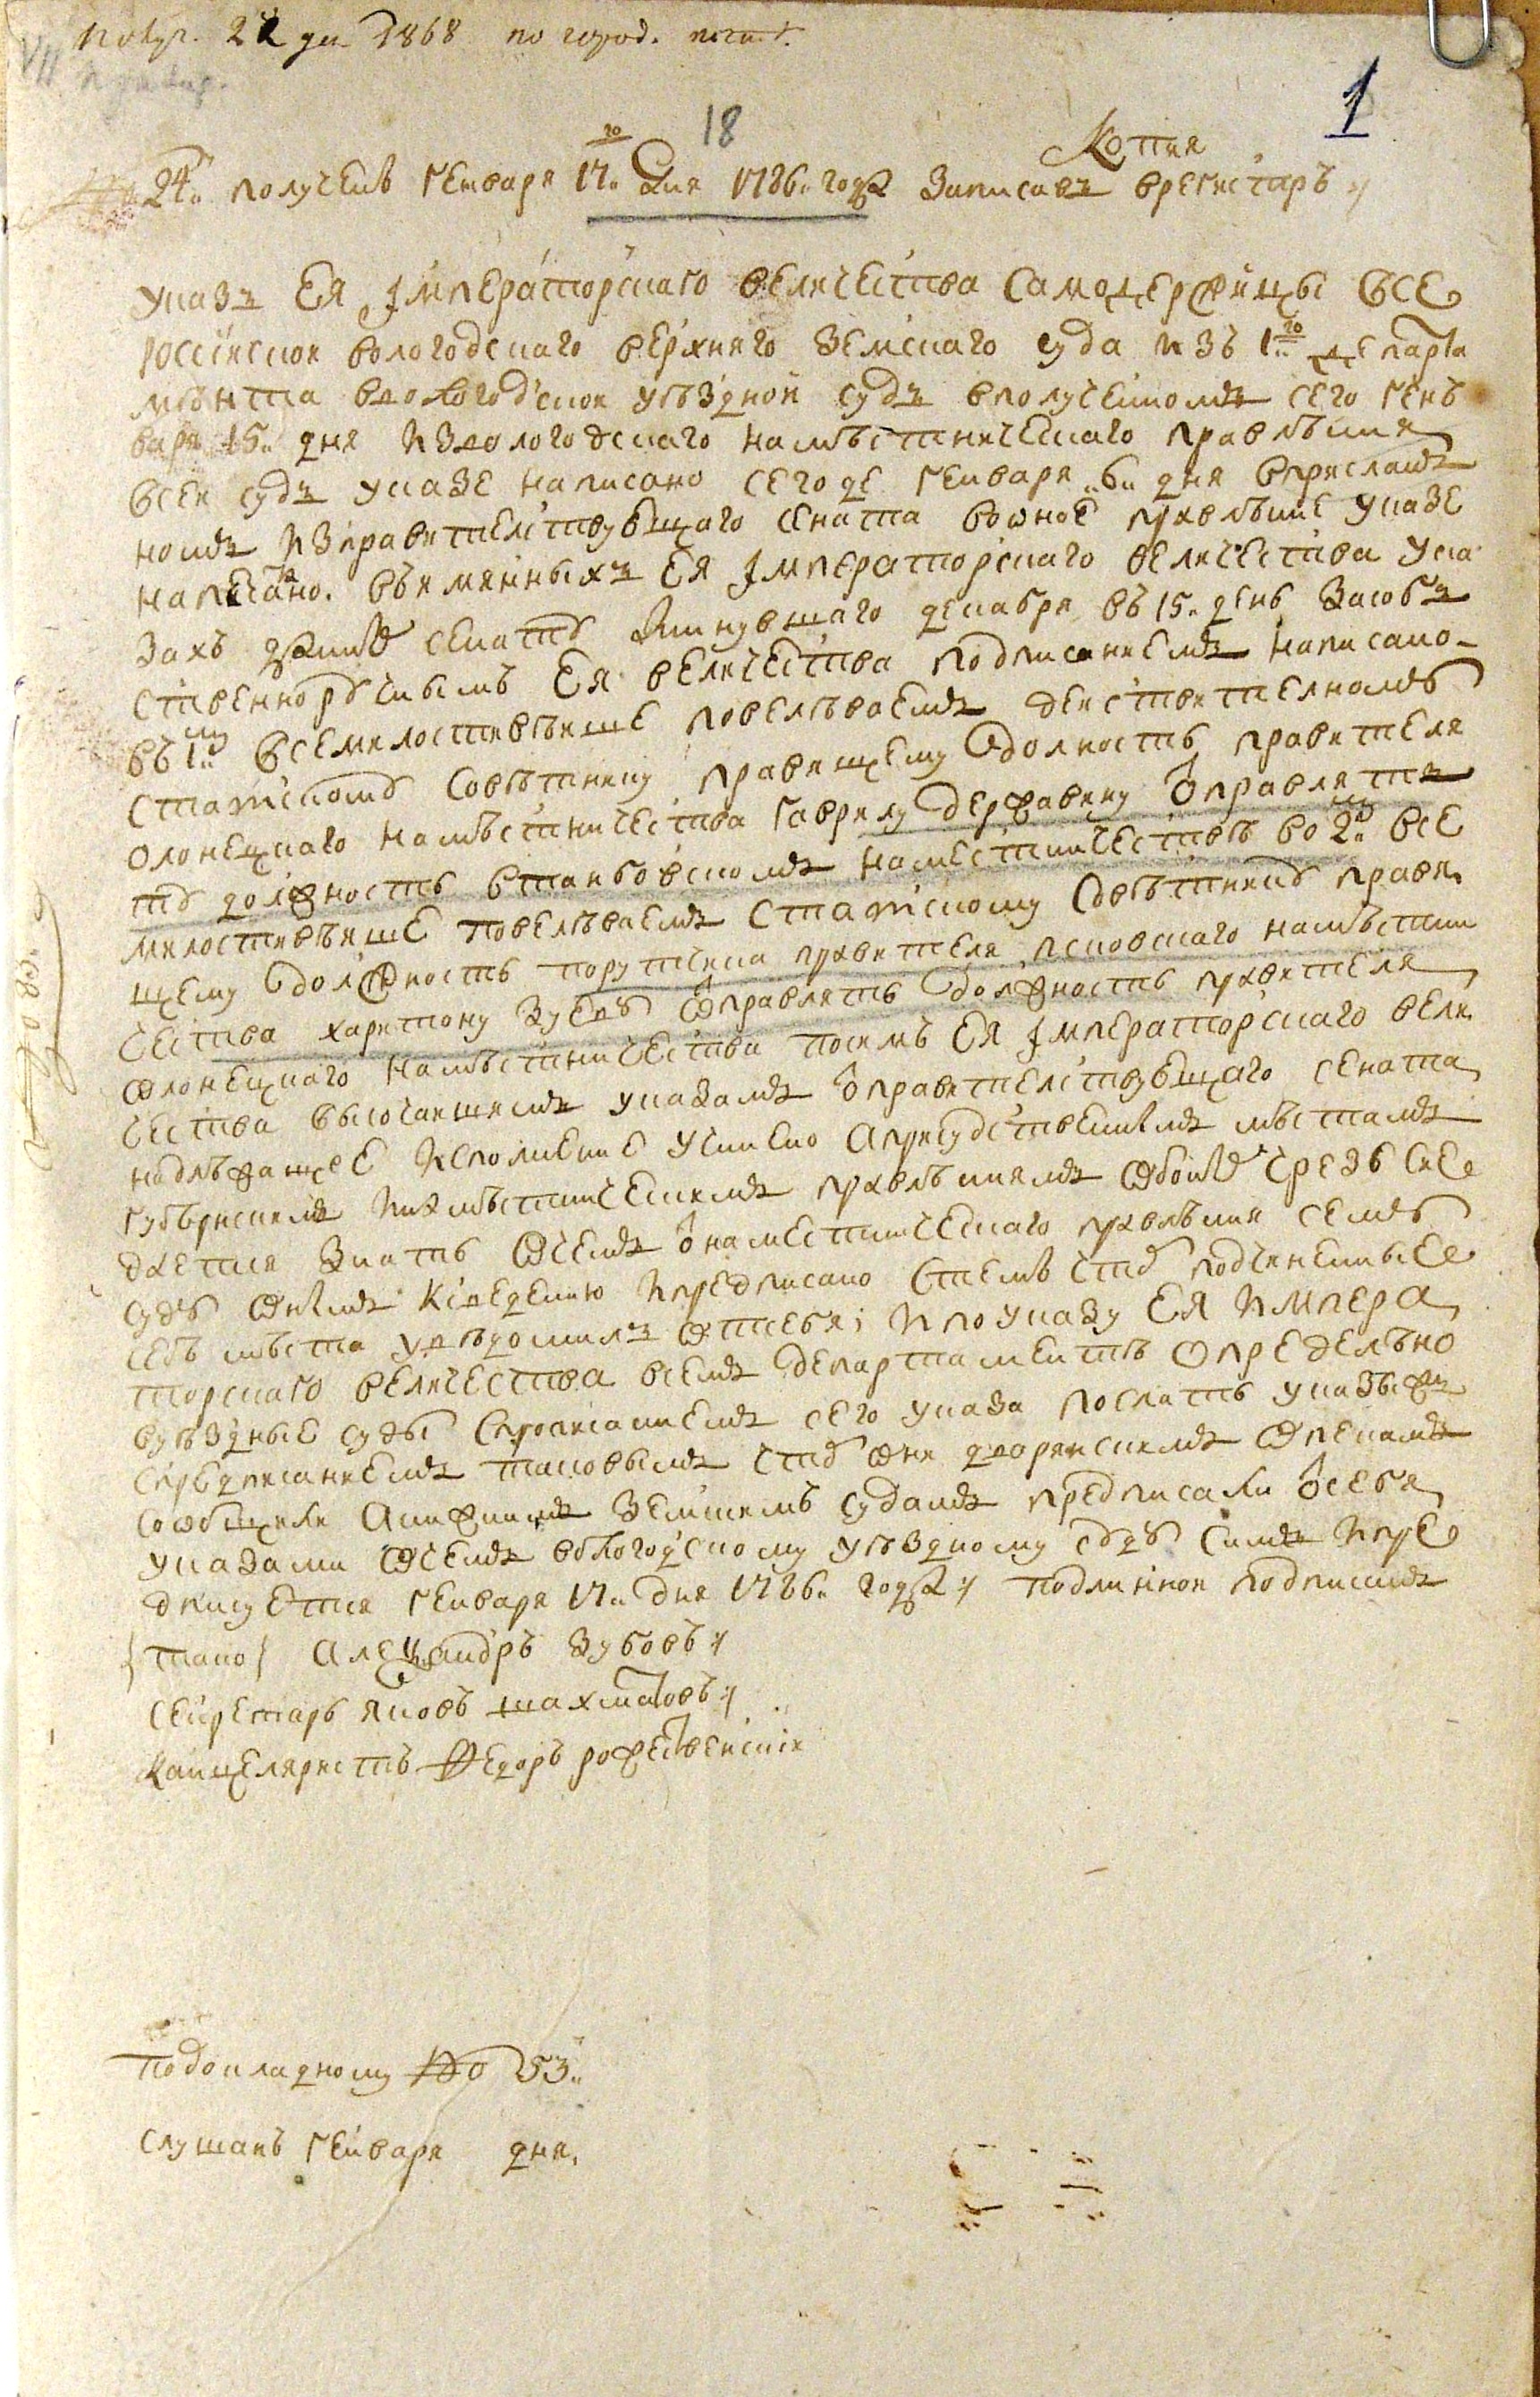 22 дек 1868 по город.
18
1
Копия
№ 24. получен Генваря 17го дня 1786. года Записавъ врегистръ
Указъ ЕЯ Iмператорскаго величества Самодержицы Всеросиской
вологодскаго верхняго Земскаго суда изъ 1го департа
мѣнта вологодской уѣздной судъ вполученномъ сего ген
варя 15. дня Извологодскаго намѣстническаго правлѣния
всей судъ указе написано сего де генваря 6. дня вприслан
номъ Изправителствующаго сената воное правлѣние указе
напечатано. въимянныхъ ЕЯ Iмператорскаго величества ука
захъ данныхъ сенату минувшаго декабря въ 15. день Засоб
ственноручнымъ ЕЯ величества подписаниемъ написано
въ 1м всемилостивѣише повелѣваемъ действителному
статскому совѣтнику правящему должность правителя
олонецкаго намѣстничества Гаврилу державину отправлять
ту должность втанбовскомъ наместничествѣ во 2м все
милостивѣише повелѣваемъ Статскому Совѣтнику правя
щему должность порутчика правителя псковскаго намѣстни
чества харитону Зуеву отправлять должность правителя
олонецкаго намѣстничества посимъ ЕЯ Iмператорскаго вели
чества высочаишимъ указамъ отправителствующаго сената
надлѣжащее исполнение учинено априсудственнымъ мѣстамъ
губернскимъ инамѣстническимъ правлѣниямъ чрезъ сие
дается знать очемъ отнаместническаго правлѣния семъ
суду оным квѣдению ипредписано стемъ чтоб подчиненные
себѣ мѣста увѣдомилъ отсебя; ипоуказу ЕЯ импера
торскаго величества всемъ департаментѣ определѣно
вуѣздные суды спрописаниемъ сего указа послать указы
спредписаниемъ таковымъ чтоб они дворянскимъ опекамъ
сообщили анижнимъ земскимъ судамъ предписали отсебя
указами очемъ вологодскому уѣздному суду симъ ипре
дписуется генваря 17. дня 1786. года подлинной подписанъ
тако Александръ Зубовъ
секретарь яковъ шахматовъ
канцеляристъ Федоръ рожественскiй
подокладному № 53.
слушанъ генваря дня,